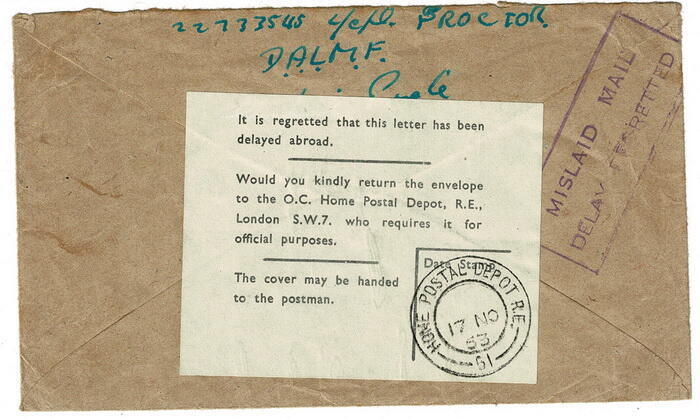 22733545 L/cpl. PROCTOR
D.A.L.M.F.
It is regretted that this letter has been
delayed abroad.
Would you kindly return the envelope
to the O.C. Home Postal Depot, R.E.,
London S.W.7. who requires it for
official purposes.
The cover may be handed
to the postman.
Date Stamp
HOME POSTAL DEPOT R.E.
17 NO
53
61
MISLAID MAIL
DELAY REGRETTED